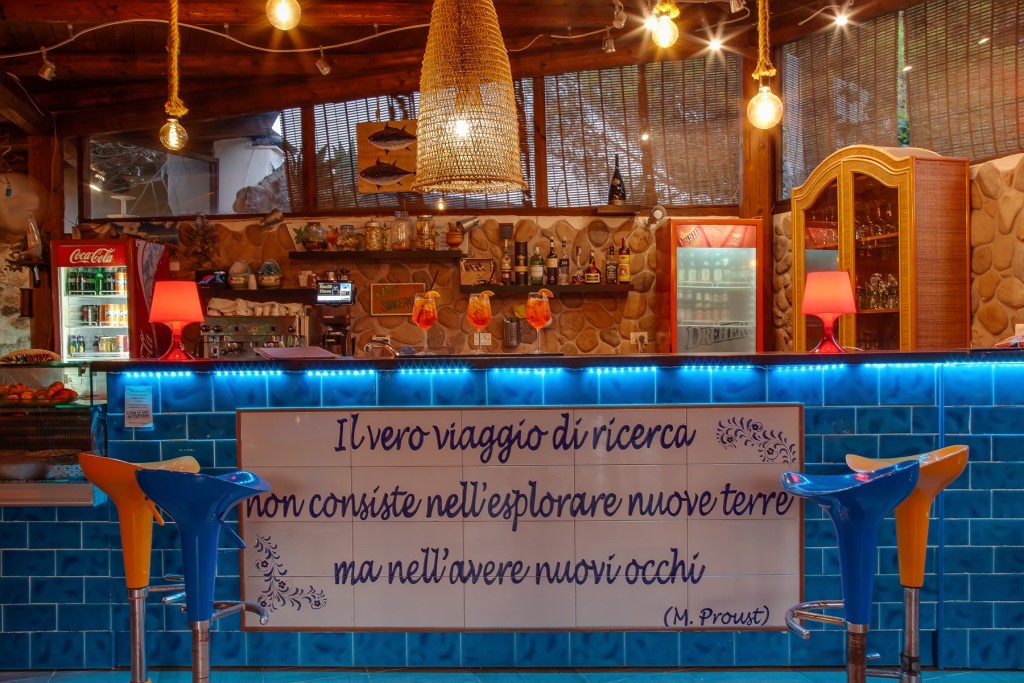 Coca-Cola
DREHER
Il vero viaggio di ricerca
non consiste nell'esplorare nuove terre
ma nell'avere nuovi occhi
(M. Proust)